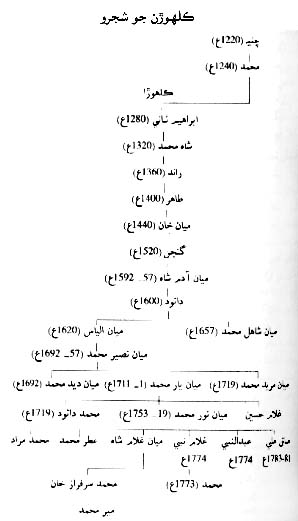 ڪلهوڙن جو شجرو
چنيہ (1220ع)
محمد (1240ع)
ڪلهوڙا
ابراهيم ناني (1280ع)
شاه محمد (1320ع)
راند (1360ع)
طاهر (1400ع)
ميان خان (1440ع)
گنجن (1520ع)
ميان آدم شاه (57_ 1592ع)
دائود (1600ع)
ميان شاهل محمد (1657ع) ميان الياس (1620ع)
ميان نصير محمد (57_ 1692ع)
ميان مريد محمد (1719ع) ميان يار محمد (1_ 1711ع) ميان ديد محمد (1692ع)
غلام حسين ميان نور محمد (19_ 1753ع) محمد دائود (1719ع)
عبدالنبي غلام نبي ميان غلام شاه عطر محمد محمد مراد
1783-81ع 1774ع 1774ع
محمد (1773ع) محمد سرفراز خان
مير محمد